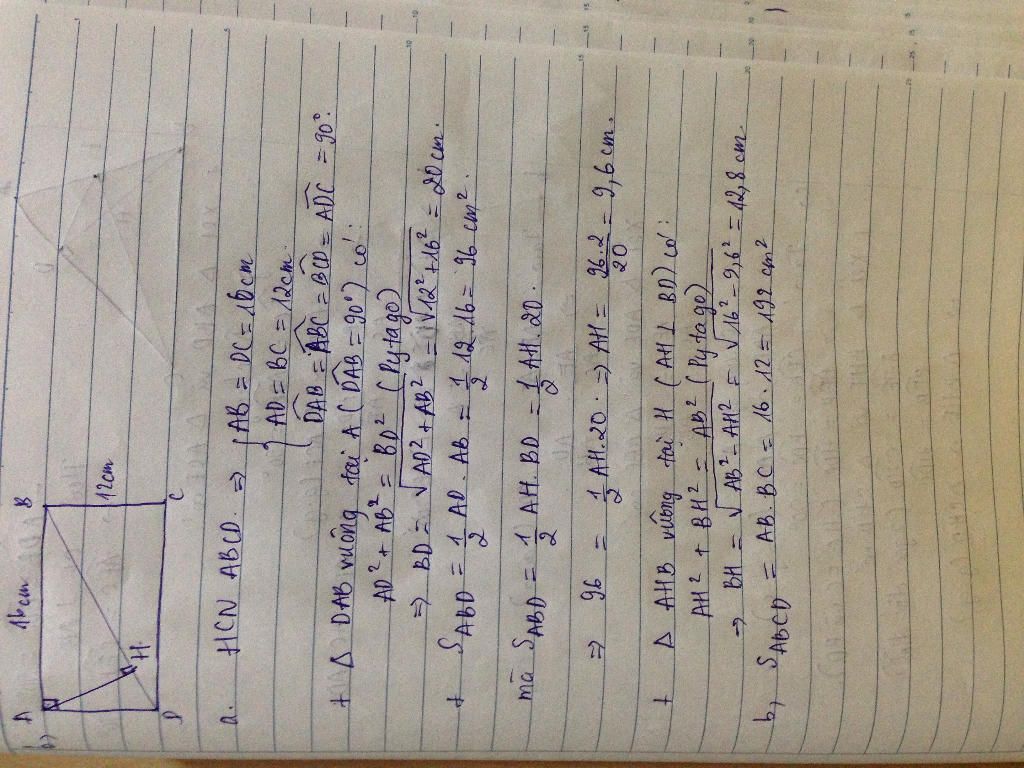 b)
A 16cm B
12cm
D H C
a. HCN ABCD. ⇒ { AB = DC = 16cm
AD = BC = 12cm.
DAB = ABC = BCD = ADC = 90°.
+ Δ DAB vuông tại A ( DAB = 90°) có:
AD² + AB² = BD² ( Pytago)
⇒ BD = √AD² + AB² = √12² + 16² = 20 cm.
+ S_ABD = 1/2 AD . AB = 1/2 12.16 = 96 cm².
mà S_ABD = 1/2 AH. BD = 1/2 AH. 20.
⇒ 96 = 1/2 AH. 20 ⇒ AH = 96.2/20 = 9,6 cm.
+ Δ AHB vuông tại H ( AH ⊥ BD) có:
AH² + BH² = AB² ( Pytago)
⇒ BH = √AB² - AH² = √16² - 9,6² = 12,8 cm.
b, S_ABCD = AB. BC = 16. 12 = 192 cm²